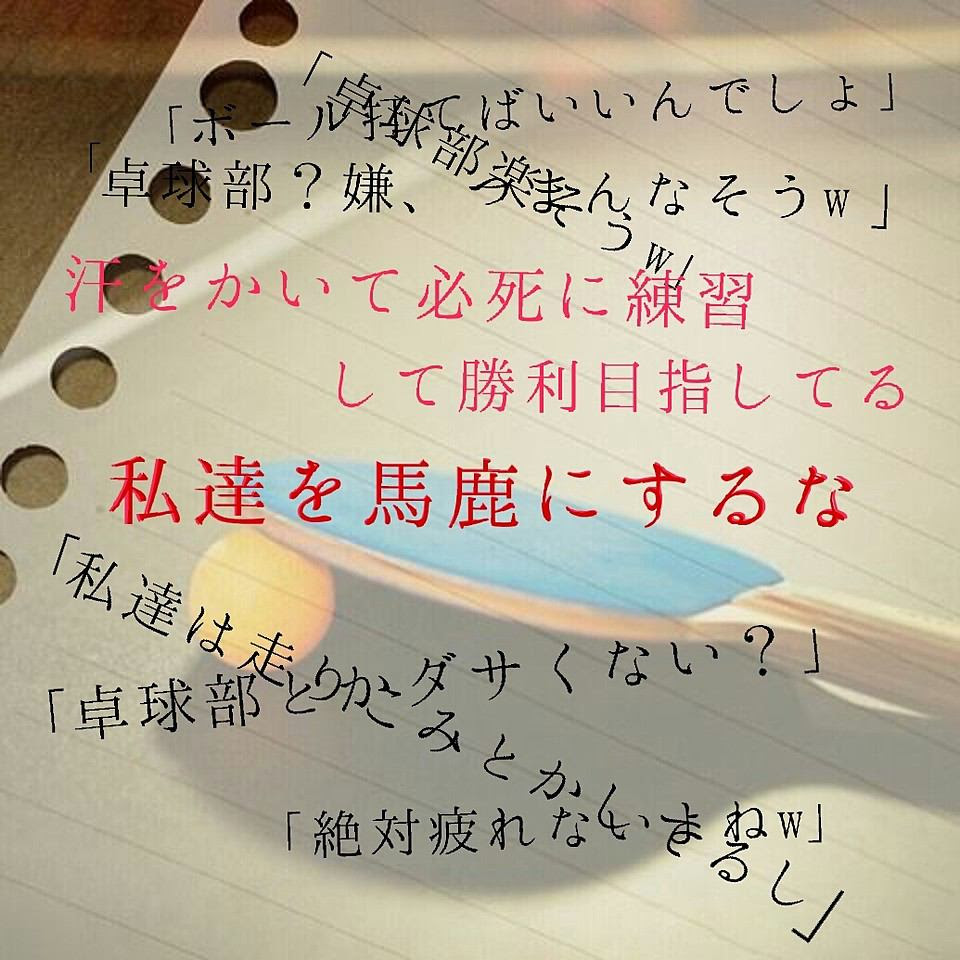 「卓球部楽そうw」
「ボール打ってばいいんでしょ」
「卓球部？嫌、つまんなそうw」
汗をかいて必死に練習
して勝利目指してる
私達を馬鹿にするな
「私達は走りこみとか るし」
「卓球部とかダサくない？」
「絶対疲れないよねw」